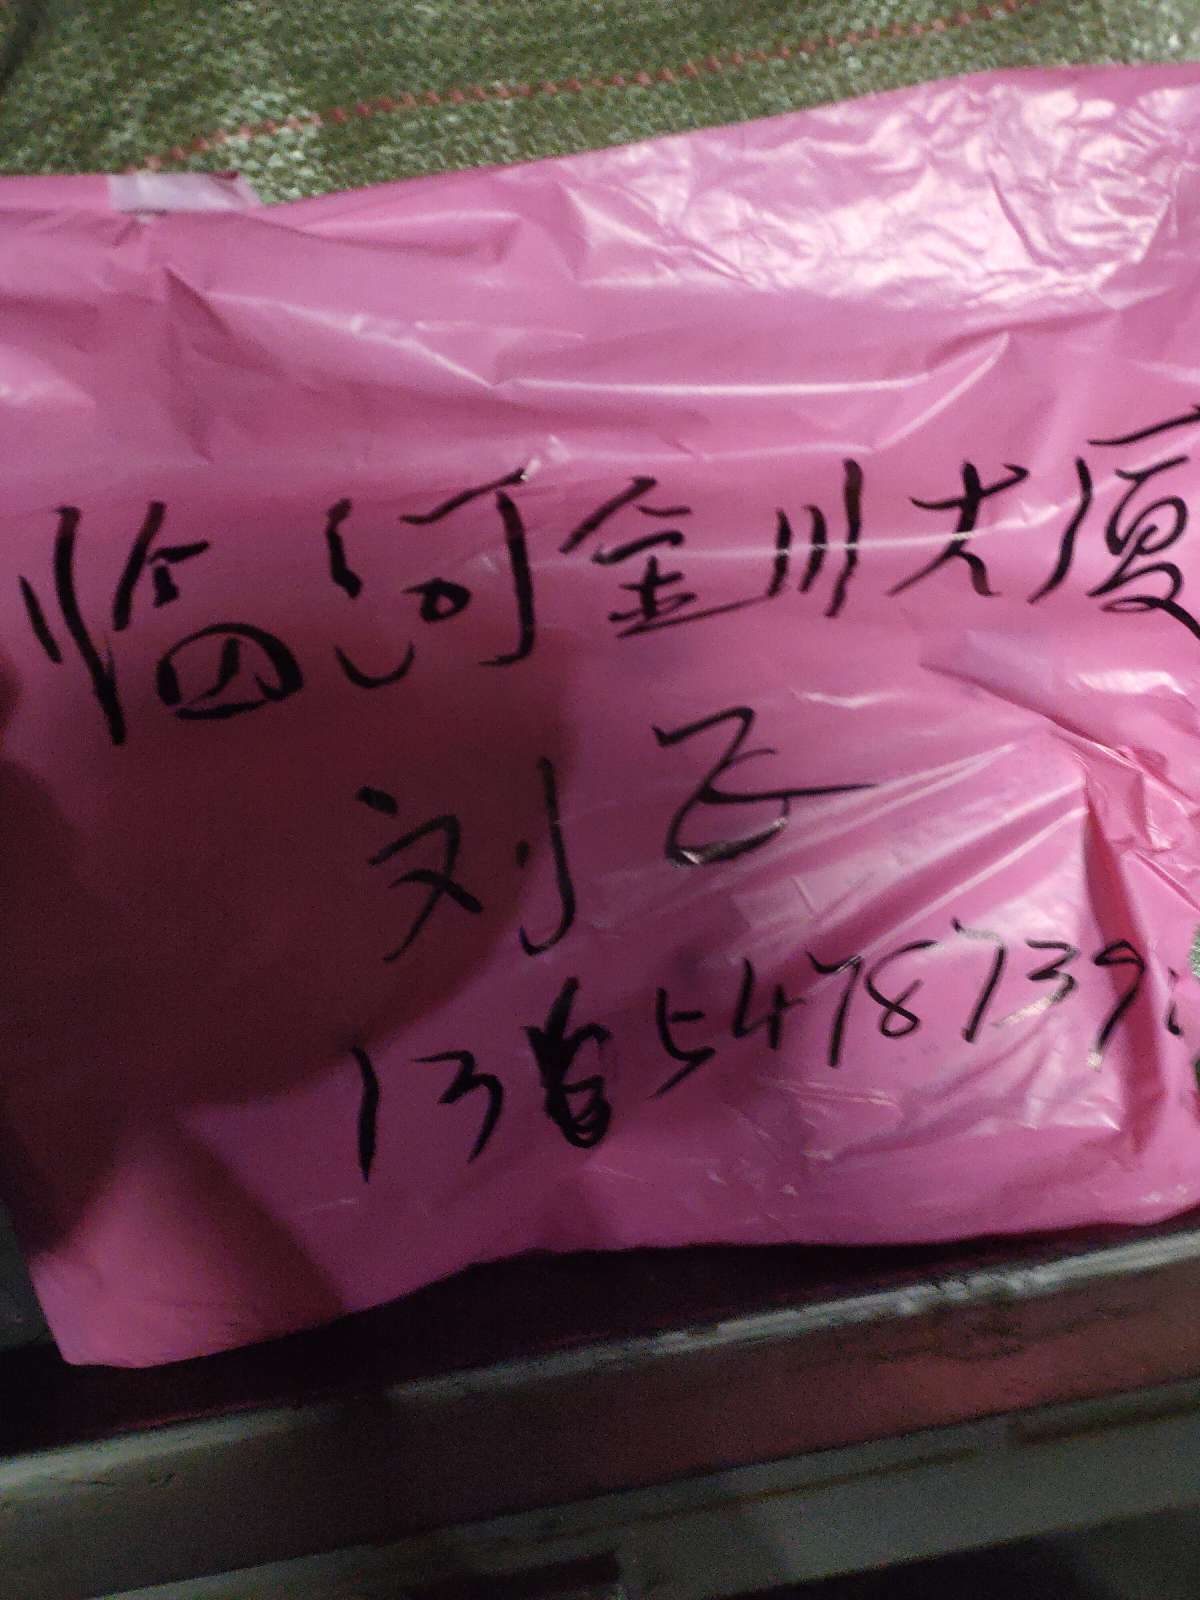 临河金川大厦
刘飞
135478739